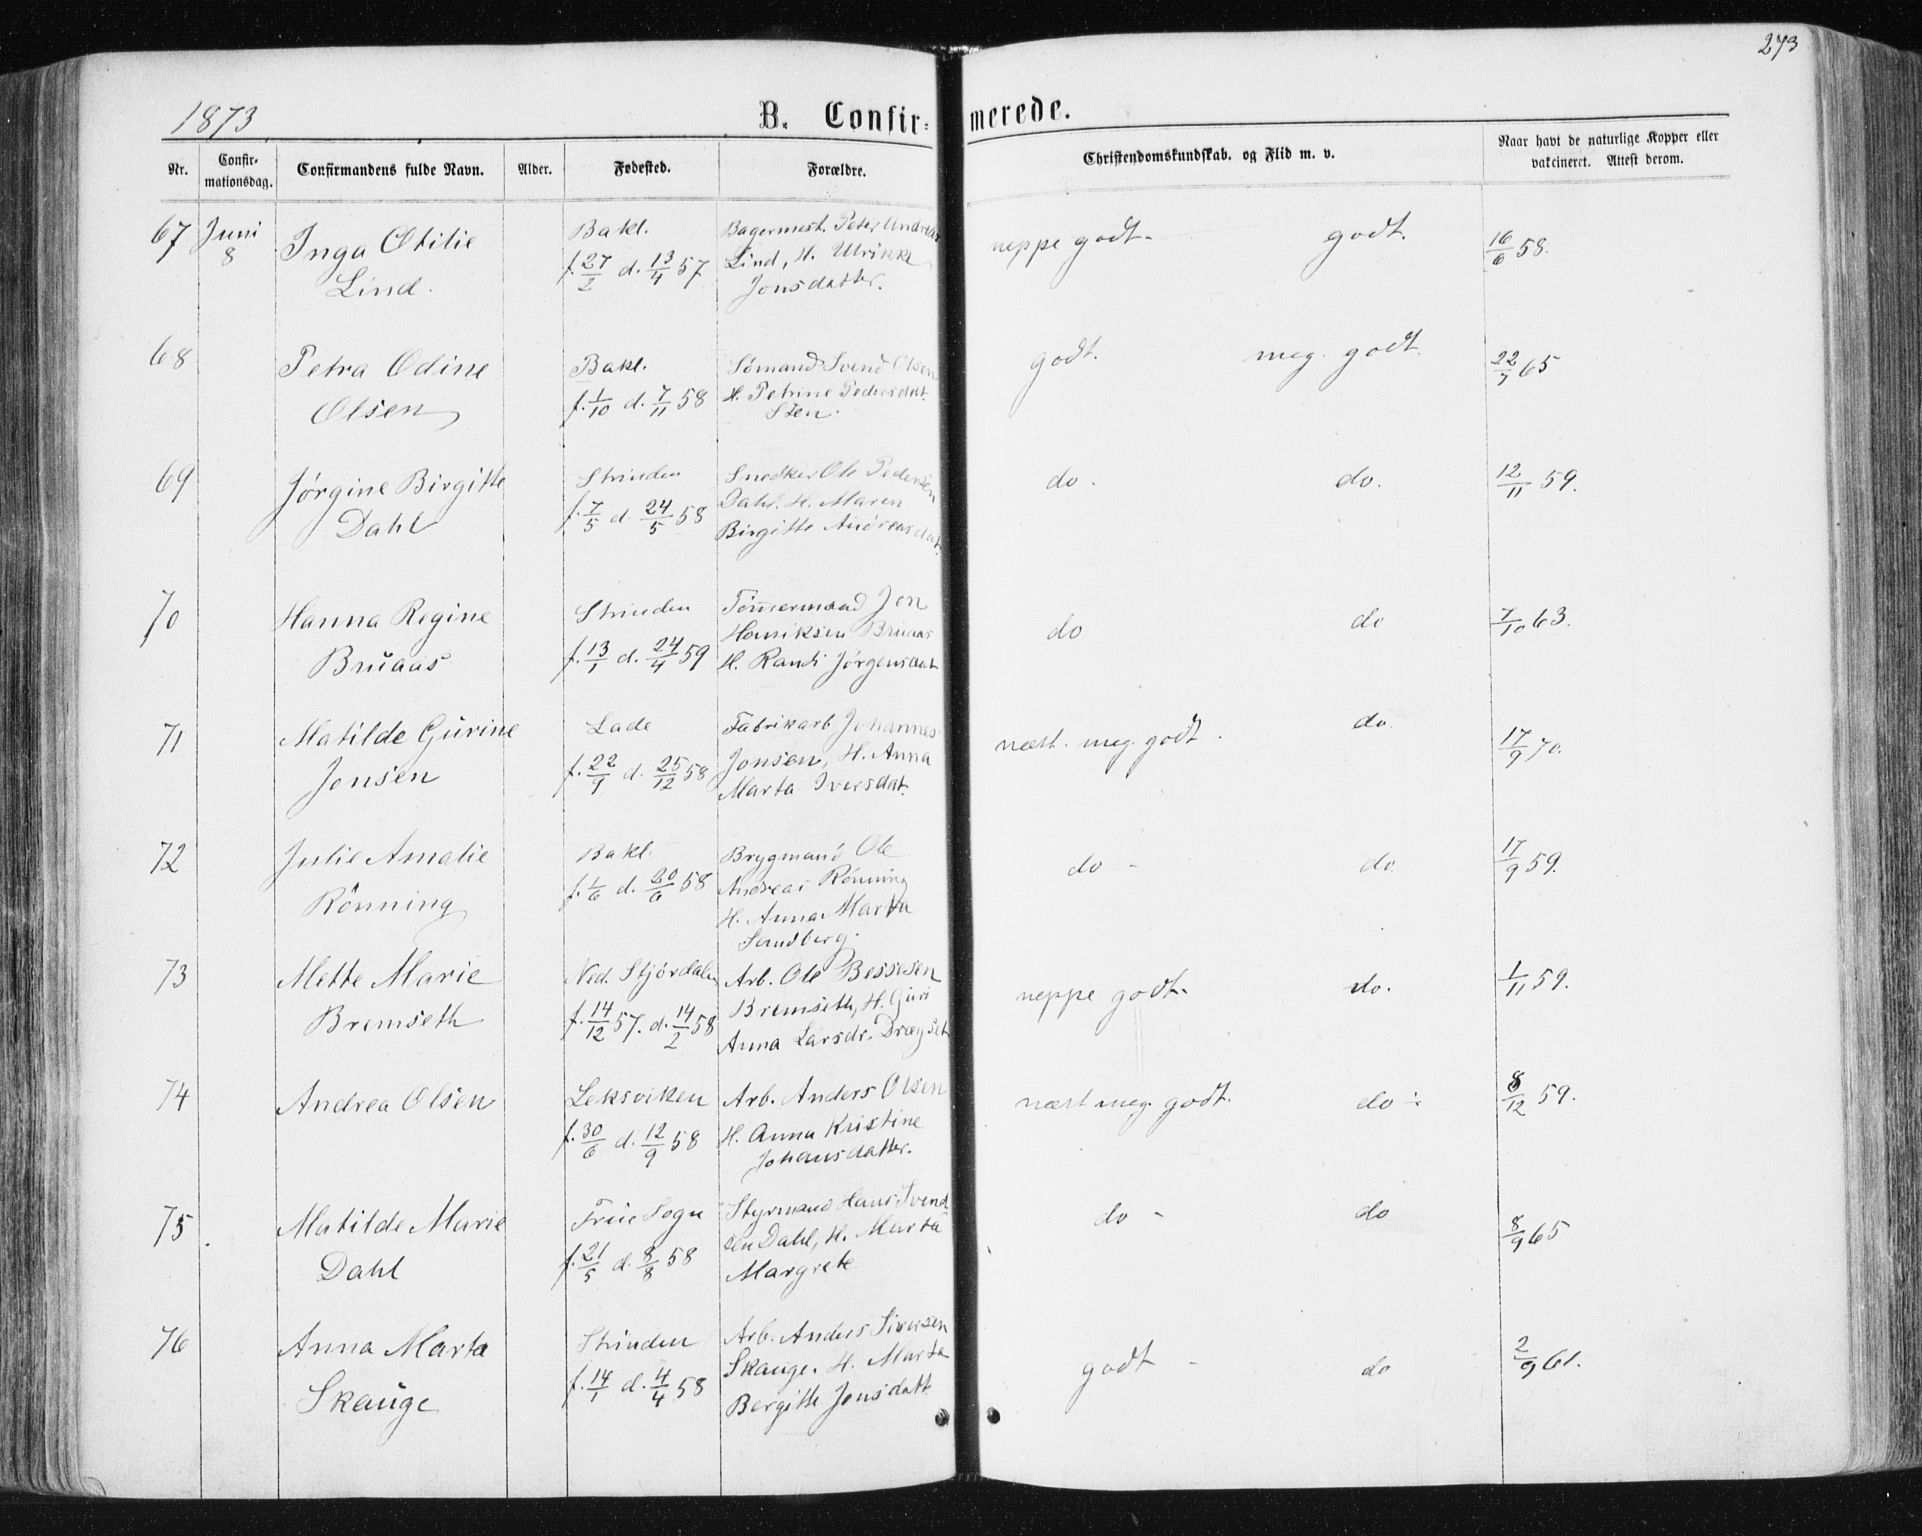 273
1873
B. Confir- merede.
Nr. Confir-mationsdag. Confirmandens fulde Navn. Alder. Fødested. Forældre. Christendomskundskab. og Flid m. v. Naar havt de naturlige Kopper eller vakcineret. Attest derom.
67 Juni 8 Inga Otilie Bakl. Bagermest. Peter Andreas neppe godt- godt. 16/6 58.
Lind. f. 27/2 d. 13/4 57 Lind, H. Ulrikke
Jonsdatter.
68 Petra Odine Bakl. Sömand Svend Olsen godt. meg. godt. 22/7 65
Olsen f. 1/10 d. 7/11 58 H. Petrine Pedersdat.
Sten.
69 Jørgine Birgitte Strinden Snedker Ole Pedersen do. do. 12/11 59.
Dahl f. 7/5 d. 24/5 58 Dahl. H. Maren
Birgitte Andreasdat.
70 Hanna Regine Strinden Tömmermand Jon do do 7/10 63.
Bruaas f. 13/1 d. 24/4 59 Henriksen Bruaas
H. Randi Jørgensdat
71 Matilde Gurine Lade Fabrikarb Johannes næst. meg. godt. do. 17/9 70.
Jonsen f. 22/9 d. 25/12 58 Jonsen, H. Anna
Marta Iversdat.
72 Julie Amalie Bakl. Brygmand Ole do - do 17/9 59.
Rönning f. 1/6 d. 20/6 58 Andreas Rönning
H. Anna Marta
Sandberg.
73 Mette Marie Ned. Stjördalen Arb. Ole Bessesen neppe godt. do. 1/11 59.
Bremseth f. 14/12 57. d. 14/2 58 Bremseth, H. Guri
Anna Larsdr. Drægset
74 Andrea Olsen Leksviken Arb. Anders Olsen næst meg. godt. do 8/12 59.
f. 30/6 d. 12/9 58 H. Anna Kristine
Johansdatter.
75 Matilde Marie Frue Sogn Styrmand Hans Svend- do - do 8/9 65
Dahl f. 21/5 d. 8/8 58 sen Dahl, H. Marta
Margrete
76 Anna Marta Strinden Arb. Anders Siversen godt - do 2/9 61.
Skauge f. 14/1 d. 4/4 58 Skauge. H. Marta
Bergitte Jonsdatt.